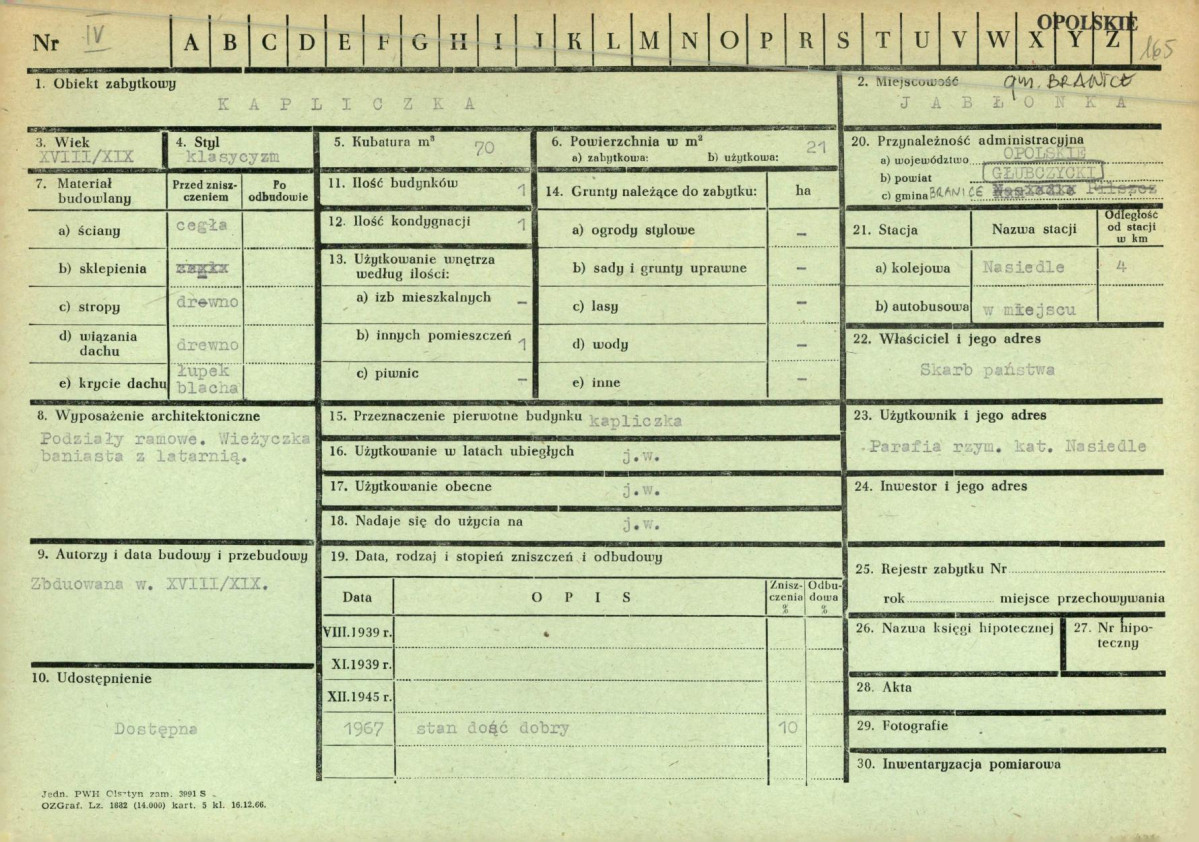 OPOLSKIE
Nr IV A B C D E F G H I J K L M N O P R S T U V W X Y Z 165
1. Obiekt zabytkowy
KAPLICZKA
2. Miejscowość gm. BRANICE
JABŁONKA
3. Wiek
XVIII/XIX
4. Styl
klasycyzm
5. Kubatura m³ 70
6. Powierzchnia w m² 21
a) zabytkowa: b) użytkowa:
20. Przynależność administracyjna
a) województwo OPOLSKIE
b) powiat GŁUBCZYCKI
c) gmina BRANICE Nasiedle Pilszcz
7. Materiał budowlany
Przed zniszczeniem
Po odbudowie
a) ściany cegła
b) sklepienia
c) stropy drewno
d) wiązania dachu drewno
e) krycie dachu łupek
blacha
11. Ilość budynków 1
12. Ilość kondygnacji 1
13. Użytkowanie wnętrza
według ilości:
a) izb mieszkalnych –
b) innych pomieszczeń 1
c) piwnic –
14. Grunty należące do zabytku: ha
a) ogrody stylowe –
b) sady i grunty uprawne –
c) lasy –
d) wody –
e) inne –
21. Stacja Nazwa stacji Odległość od stacji w km
a) kolejowa Nasiedle 4
b) autobusowa w miejscu
22. Właściciel i jego adres
Skarb państwa
8. Wyposażenie architektoniczne
Podziały ramowe. Wieżyczka
baniasta z latarnią.
15. Przeznaczenie pierwotne budynku kapliczka
16. Użytkowanie w latach ubiegłych j.w.
17. Użytkowanie obecne j.w.
18. Nadaje się do użycia na j.w.
23. Użytkownik i jego adres
Parafia rzym. kat. Nasiedle
24. Inwestor i jego adres
9. Autorzy i data budowy i przebudowy
Zbduowana w. XVIII/XIX.
19. Data, rodzaj i stopień zniszczeń i odbudowy
Data OPIS Zniszczenia % Odbudowa %
VIII.1939 r.
XI.1939 r.
XII.1945 r.
1967 stan dość dobry 10
25. Rejestr zabytku Nr
rok miejsce przechowywania
26. Nazwa księgi hipotecznej
27. Nr hipoteczny
10. Udostępnienie
Dostępna
28. Akta
29. Fotografie
30. Inwentaryzacja pomiarowa
Jedn. PWH Olsztyn zam. 3991 S
OZGraf. Lz. 1682 (14.000) kart. 5 kl. 16.12.66.